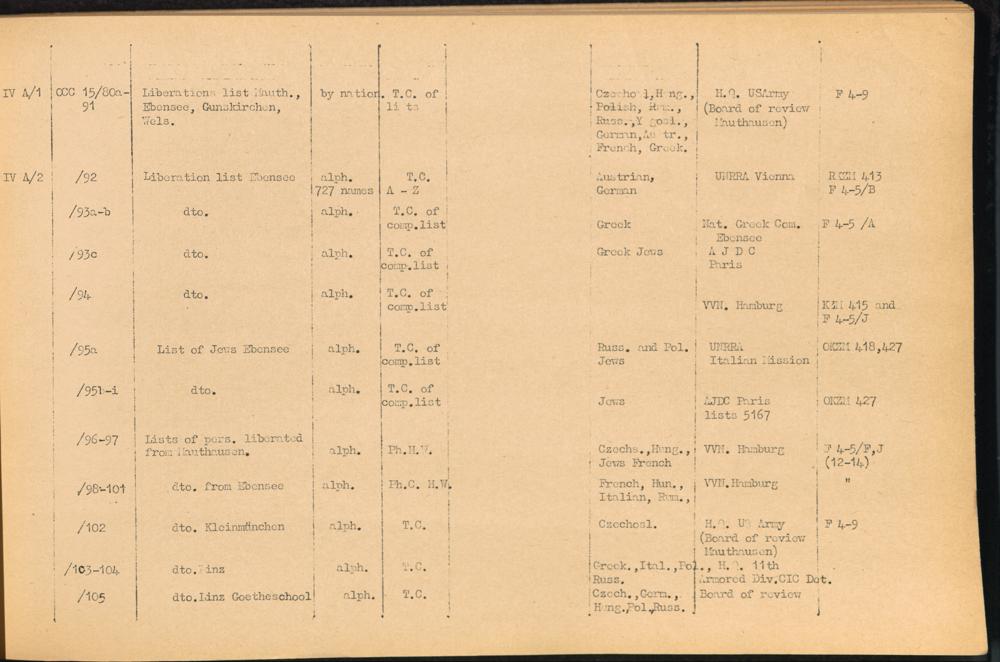 IV A/1 OCC 15/80a- Liberations list Mauth., by nation. T.C. of Czechosl,Hung., H.Q. USArmy F 4-9
91 Ebensee, Gunskirchen, lists Polish, Rum., (Board of review
Wels. Russ.,Y gosl., Mauthausen)
German,Austr.,
French, Greek.
IV A/2 /92 Liberation list Ebensee alph. T.C. Austrian, UNRRA Vienna 413
727 names A - Z German F 4-5/B
/93a-b dto. alph. T.C. of Greek Nat. Greek Com. F 4-5 /A
comp.list Ebensee
/93c dto. alph. T.C. of Greek Jews A J D C
comp.list Paris
/94 dto. alph. T.C. of
comp.list VVN. Hamburg KZM 415 and
F 4-5/J
/95a List of Jews Ebensee alph. T.C. of Russ. and Pol. UNRRA OKZM 418,427
comp.list Jews Italian Mission
/95b-i dto. alph. T.C. of
comp.list Jews AJDC Paris OKZM 427
lists 5167
/96-97 Lists of pers. liberated
from Mauthausen. alph. Ph.H.W. Czechs.,Hung., VVN. Hamburg F 4-5/F,J
Jews French (12-14)
/98-101 dto. from Ebensee alph. Ph.C. H.W. French, Hun., VVN.Hamburg "
Italian, Rum.,
/102 dto. Kleinmünchen alph. T.C. Czechosl. H.Q. US Army F 4-9
(Board of review
Mauthausen)
/103-104 dto.Linz alph. T.C. Greek.,Ital.,Pol., H.Q. 11th
Russ. Armored Div.CIC Det.
/105 dto.Linz Goetheschool alph. T.C. Czech.,Germ., Board of review
Hung.Pol,Russ.